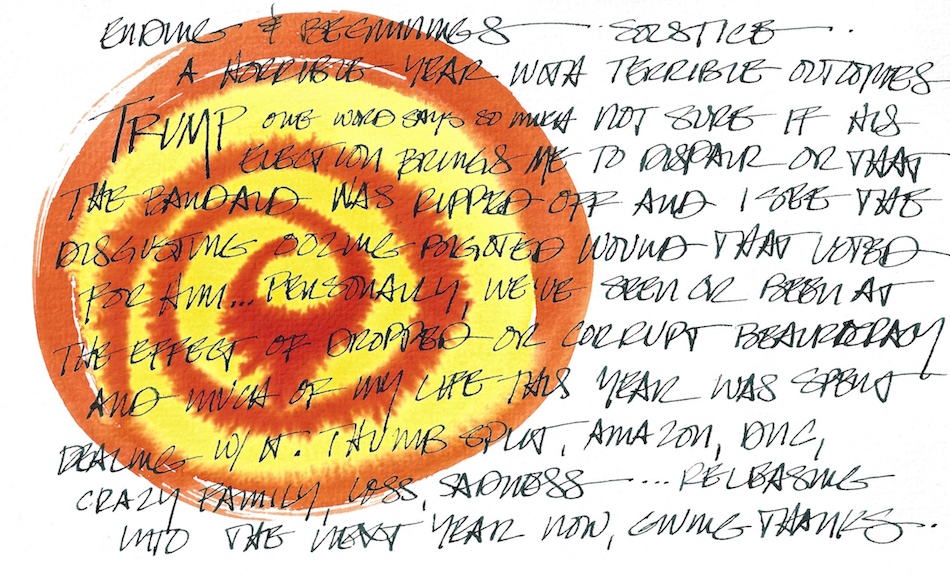 ENDING & BEGINNINGS SOLSTICE.
A HORRIBLE YEAR WITH TERRIBLE OUTCOMES
TRUMP ONE WORD SAYS SO MUCH NOT SURE IF HIS
ELECTION BRINGS ME TO DISPAIR OR THAT
THE BANDAID WAS RIPPED OFF AND I SEE THE
DISGUSTING OOZING BIGOTED WOUND THAT VOTED
FOR HIM... PERSONALLY, WE'VE SEEN OR BEEN AT
THE EFFECT OF DROPPED OR CORRUPT BEAUROCRACY
AND MUCH OF MY LIFE THIS YEAR WAS SPENT
DEALING W/ IT. THUMB SPLIT, AMAZON, DMC,
CRAZY FAMILY, LOSS, SADNESS ... RELEASING
INTO THE NEXT YEAR NOW, GIVING THANKS.